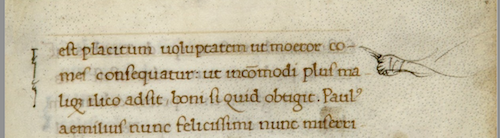 est placitum uoluptatem ut moeror co-
mes consequatur: ut incōmodi plus ma
liq; ilico adsit, boni si quid obtigit. Paulꝰ
aemilius nunc felicissimi nunc miserri